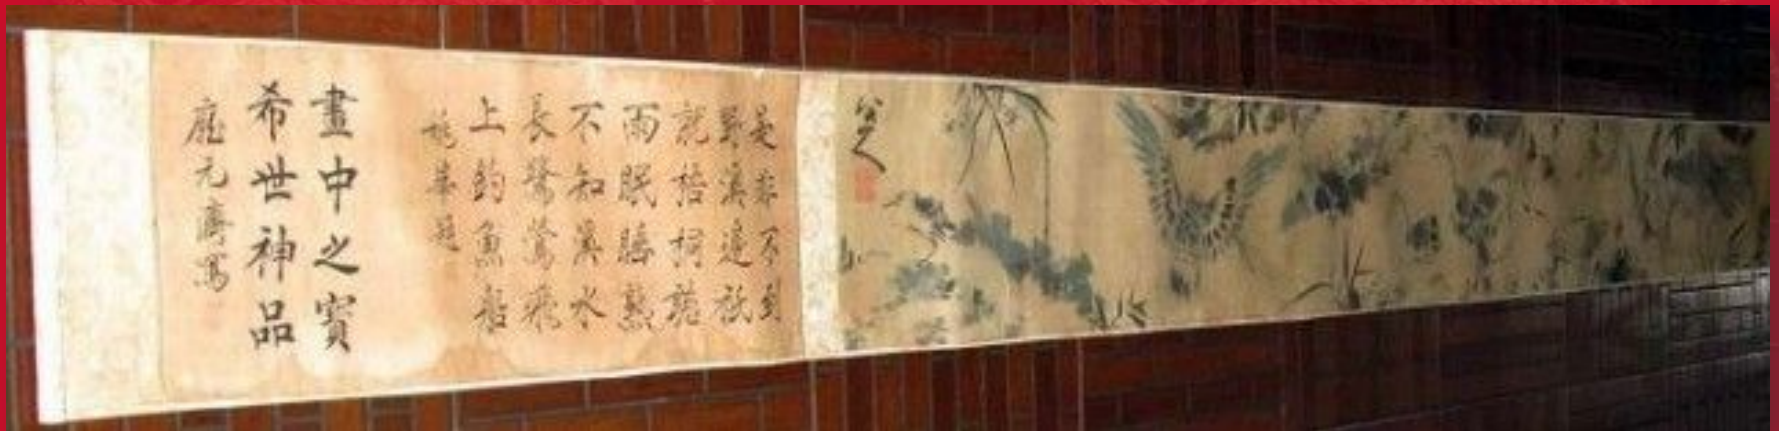 是非不到
野溪邊秖
就梧桐聽
雨眠睡熟
不知溪水
長鷺鷥飛
上釣魚船
姚華題
畫中之寶
希世神品
龐元濟寫